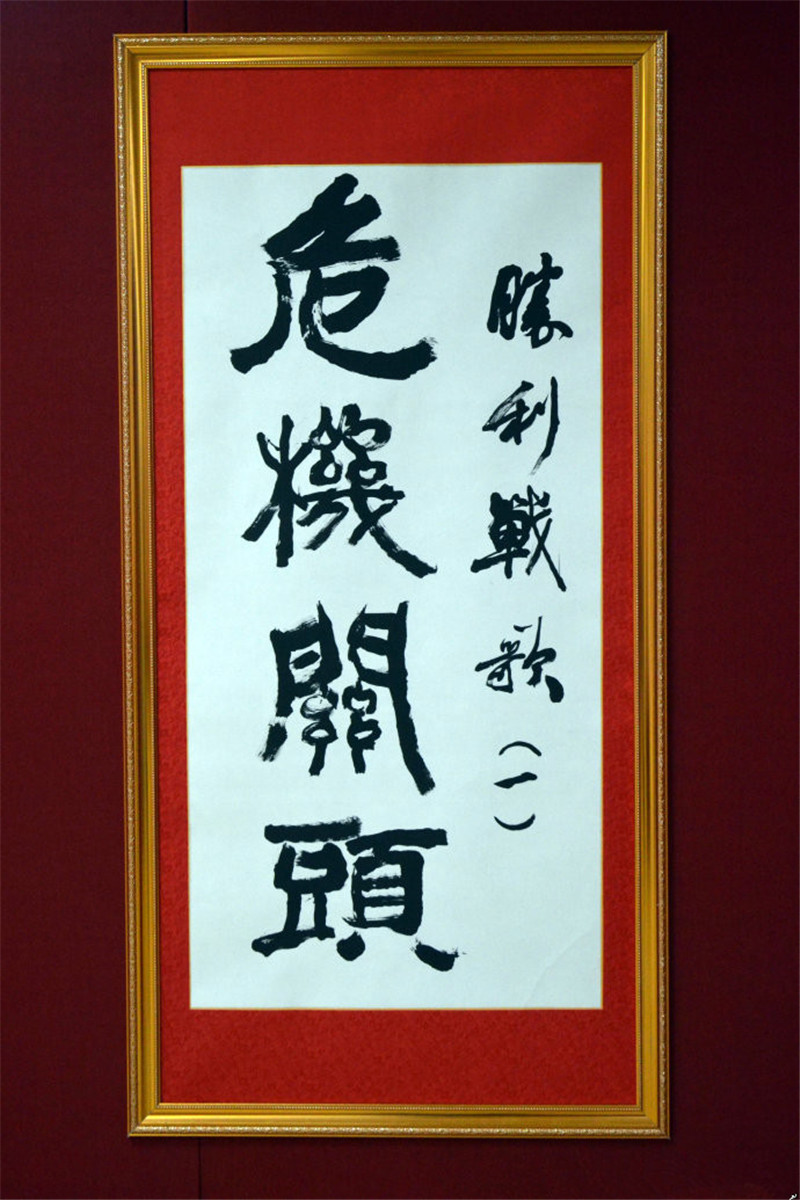 勝利戰歌（一）
危機關頭